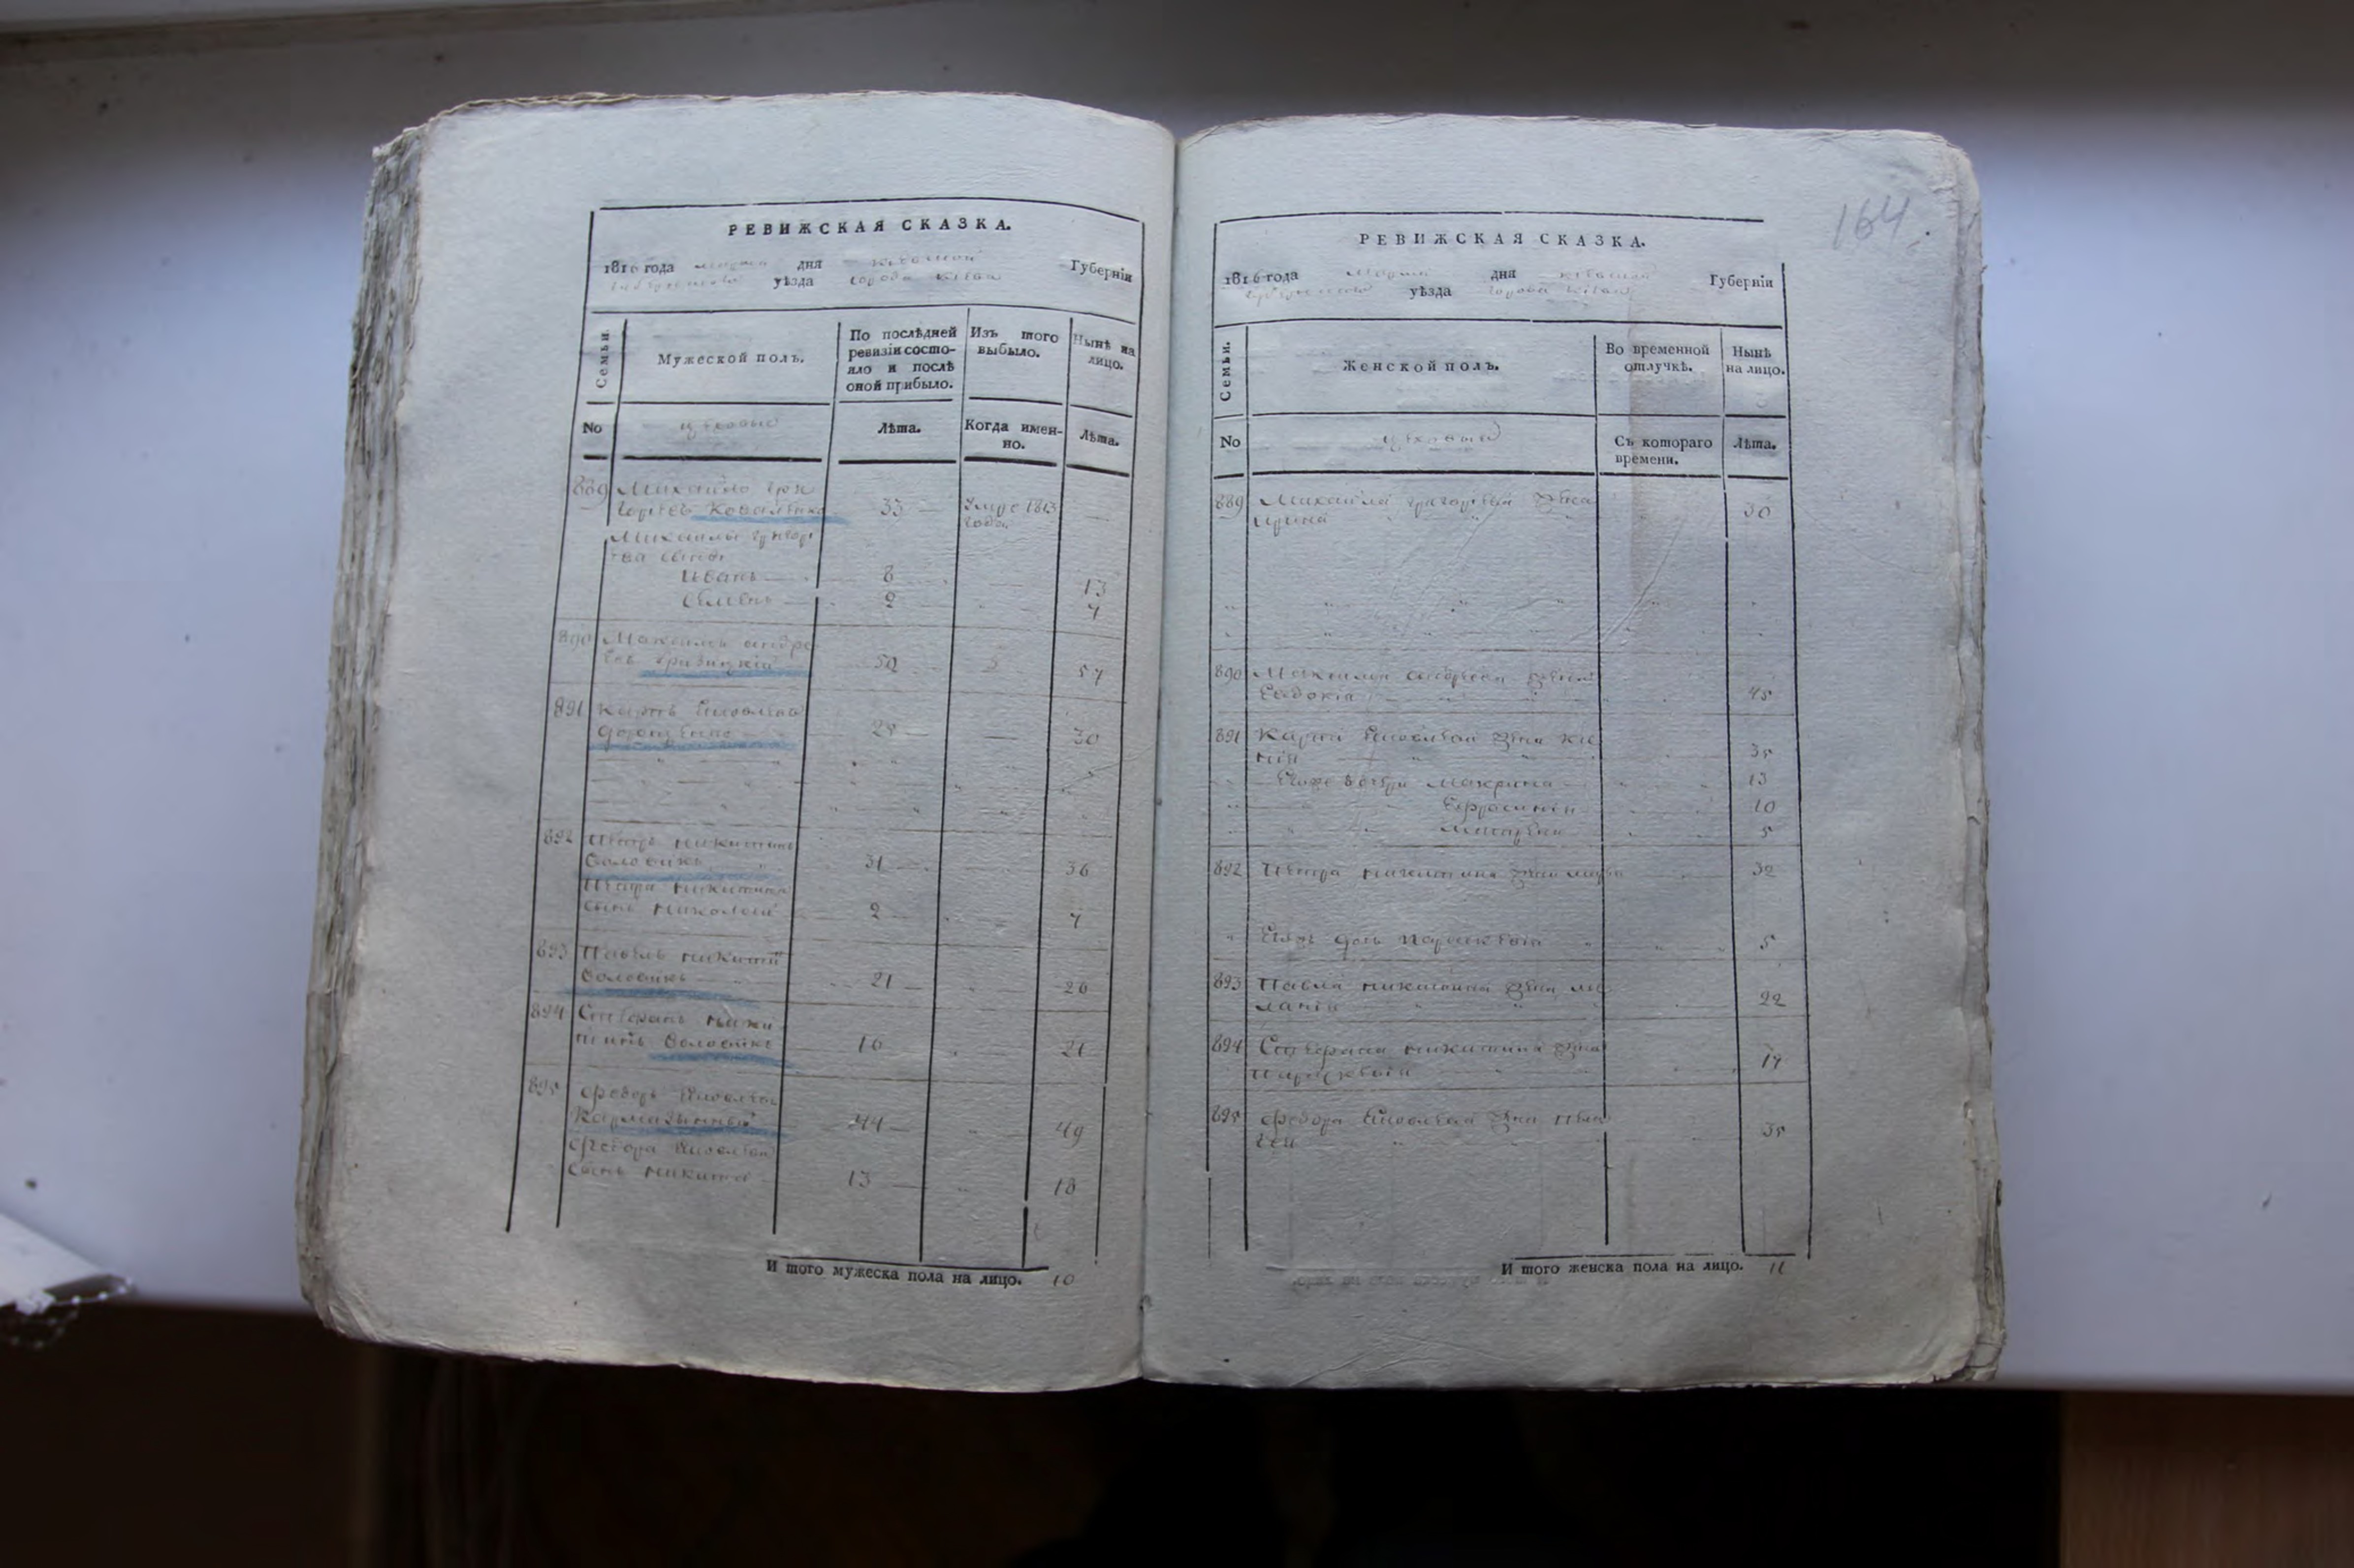 РЕВИЖСКАЯ СКАЗКА.
1816 года марта дня Кіевской Губерніи
уѣзда города Кіева
Семьи.
Мужеской полъ.
По послѣдней ревизіи состояло и послѣ оной прибыло.
Изъ того выбыло.
Нынѣ на лицо.
No
цеховые
Лѣта.
Когда именно.
Лѣта.
889 Михайло Гри
горьевъ Коваленко 33 Умре 1813 года
Михайлы Григорь
ева сыновья
Иванъ 8 13
Семенъ 2 7
890 Максимъ Андре
евъ 52 57
891 Карпъ Яковлевъ
Дорошенко 25 30
892 Петръ Никитинъ
31 36
Петра Никитина
сынъ Николай 2 7
893 Павелъ Никитинъ
21 26
894 Степанъ Ники
тинъ 16 21
895 Федоръ Яковлевъ
Кармазинный 44 49
Федора Яковлева
сынъ Никита 13 18
И того мужеска пола на лицо. 10
164
РЕВИЖСКАЯ СКАЗКА.
1816 года марта дня Кіевской Губерніи
уѣзда города Кіева
Семьи.
Женской полъ.
Во временной отлучкѣ.
Нынѣ на лицо.
No
цеховые
Съ котораго времени.
Лѣта.
889 Михайла Григорьева жена
Ирина 30
890 Максима Андреева жена
Евдокія 45
891 Карпа Яковлева жена
35
Его дочери Макрина 13
Ефросинія 10
5
892 Петра Никитина жена 32
Его дочь Параскевія 5
893 Павла Никитина жена Ме
ланія 22
894 Степана Никитина жена
Параскевія 19
895 Федора Яковлева жена Пела
гея 35
И того женска пола на лицо. 11